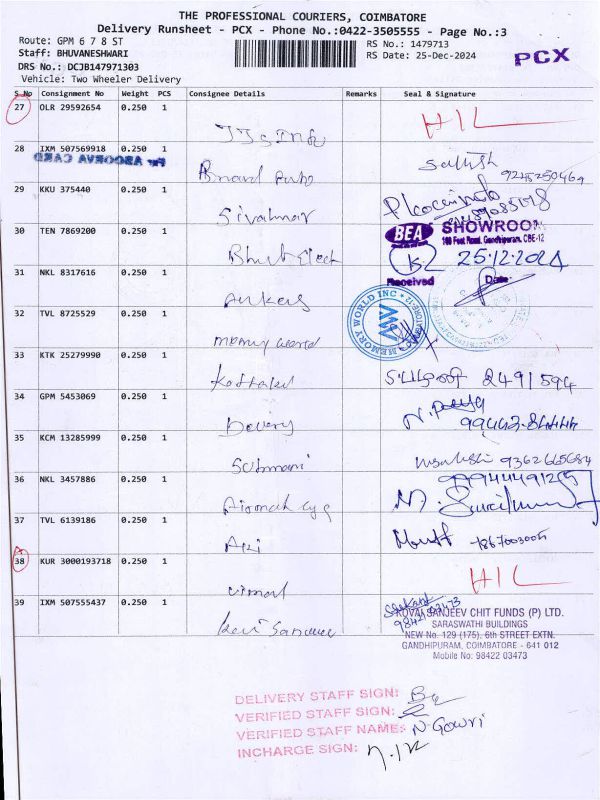 THE PROFESSIONAL COURIERS, COIMBATORE
Delivery Runsheet - PCX - Phone No.:0422-3505555 - Page No.:3
Route: GPM 6 7 8 ST
Staff: BHUVANESHWARI
DRS No.: DCJB147971303
Vehicle: Two Wheeler Delivery
RS No.: 1479713
RS Date: 25-Dec-2024
PCX
S No Consignment No Weight PCS Consignee Details Remarks Seal & Signature
27 OLR 29592654 0.250 1 HIL
28 IXM 507569918 0.250 1 Satish
For ABOORVA CARD
9245250469
29 KKU 375440 0.250 1 Sivakumar
30 TEN 7869200 0.250 1 Bharat Elect
BEA SHOWROOM
100 Feet Road, Gandhipuram, CBE-12
25.12.2024
Received Date
31 NKL 8317616 0.250 1 Ankas
32 TVL 8725529 0.250 1 memory world
MEMORY WORLD INC COIMBATORE-12
33 KTK 25279990 0.250 1 2491594
34 GPM 5453069 0.250 1
99442-84444
35 KCM 13285999 0.250 1 Submani 9362665684
36 NKL 3457886 0.250 1 9944491255
37 TVL 6139186 0.250 1 Api 7867003005
38 KUR 3000193718 0.250 1 vimal HIL
39 IXM 507555437 0.250 1
KOVAI SANJEEV CHIT FUNDS (P) LTD.
SARASWATHI BUILDINGS
NEW No. 129 (175), 6th STREET EXTN.
GANDHIPURAM, COIMBATORE - 641 012
Mobile No: 98422 03473
DELIVERY STAFF SIGN:
VERIFIED STAFF SIGN:
VERIFIED STAFF NAME: N. Gowri
INCHARGE SIGN: